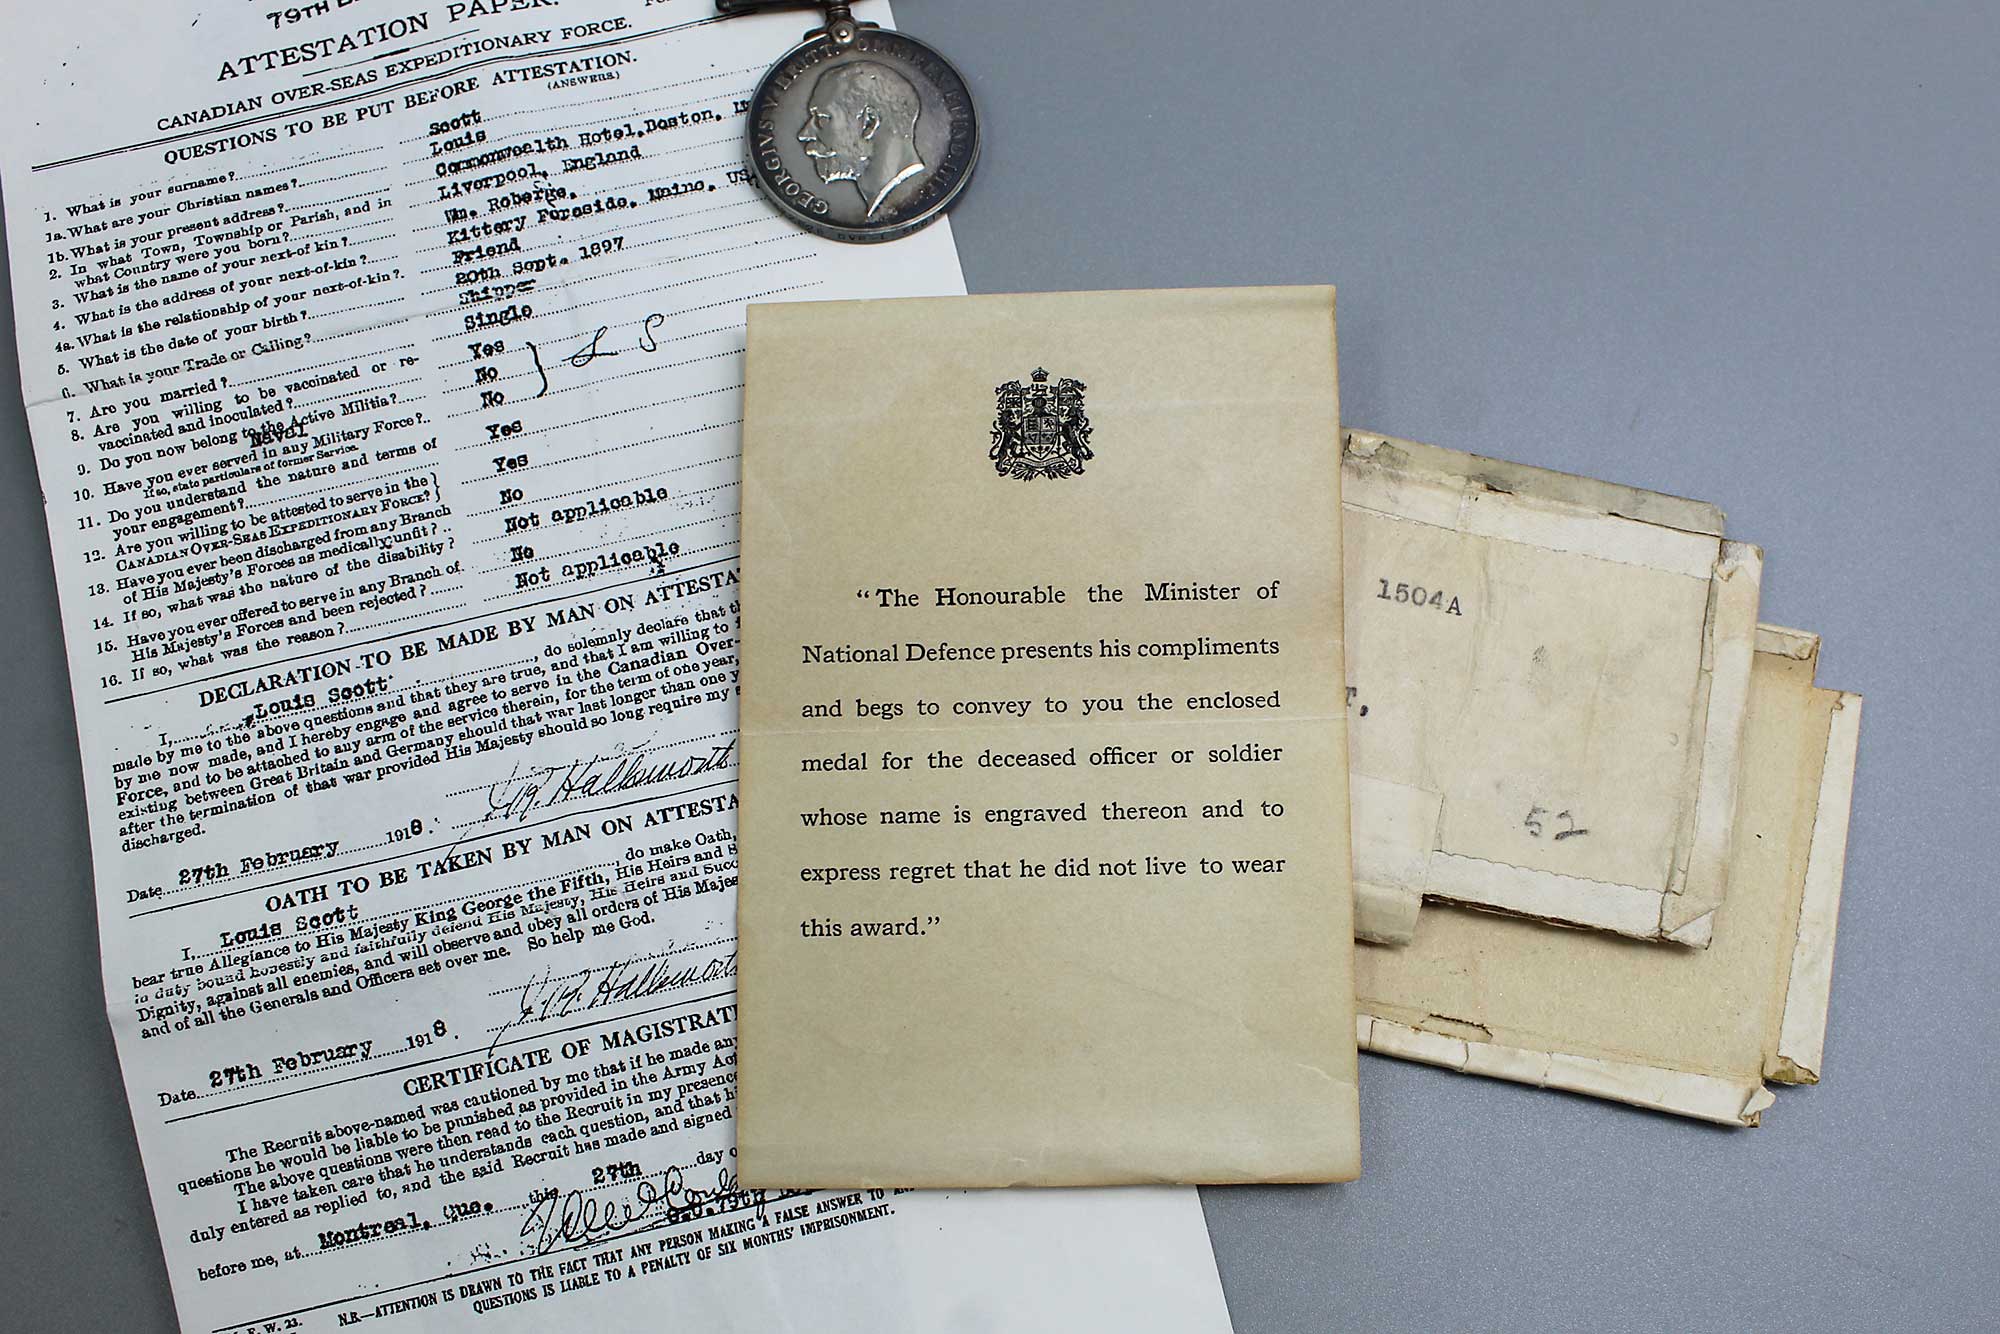 79TH
ATTESTATION PAPER.
CANADIAN OVER-SEAS EXPEDITIONARY FORCE.
QUESTIONS TO BE PUT BEFORE ATTESTATION.
(ANSWERS.)
1. What is your surname?
Scott
1a. What are your Christian names?
Louis
1b. What is your present address?
Commonwealth Hotel, Boston,
2. In what Town, Township or Parish, and in
what Country were you born?
Liverpool, England
3. What is the name of your next-of kin?
Wm. Roberge,
4. What is the address of your next-of-kin?
Kittery Foreside, Maine, US
4a. What is the relationship of your next-of-kin?
Friend
5. What is the date of your birth?
20th Sept. 1897
6. What is your Trade or Calling?
Shipper
7. Are you married?
Single
8. Are you willing to be vaccinated or re-
vaccinated and inoculated?
Yes
9. Do you now belong to the Active Militia?
No
Naval
10. Have you ever served in any Military Force?
If so, state particulars of former Service.
No
L S
11. Do you understand the nature and terms of
your engagement?
Yes
12. Are you willing to be attested to serve in the
CANADIAN OVER-SEAS EXPEDITIONARY FORCE?
Yes
13. Have you ever been discharged from any Branch
of His Majesty's Forces as medically unfit?
No
14. If so, what was the nature of the disability?
Not applicable
15. Have you ever offered to serve in any Branch of
His Majesty's Forces and been rejected?
No
16. If so, what was the reason?
Not applicable
DECLARATION TO BE MADE BY MAN ON ATTESTA
I, Louis Scott, do solemnly declare that th
made by me to the above questions and that they are true, and that I am willing to
by me now made, and I hereby engage and agree to serve in the Canadian Over-
Force, and to be attached to any arm of the service therein, for the term of one year,
existing between Great Britain and Germany should that war last longer than one y
after the termination of that war provided His Majesty should so long require my s
discharged.
Hallsworth
Date 27th February 1918.
OATH TO BE TAKEN BY MAN ON ATTESTA
I, Louis Scott, do make Oath,
bear true Allegiance to His Majesty King George the Fifth, His Heirs and S
in duty bound honestly and faithfully defend His Majesty, His Heirs and Succ
Dignity, against all enemies, and will observe and obey all orders of His Majes
and of all the Generals and Officers set over me. So help me God.
Hallsworth
Date 27th February 1918.
CERTIFICATE OF MAGISTRATE
The Recruit above-named was cautioned by me that if he made any
questions he would be liable to be punished as provided in the Army Act
The above questions were then read to the Recruit in my presence
I have taken care that he understands each question, and that hi
duly entered as replied to, and the said Recruit has made and signed
before me, at Montreal, Que. this 27th day o
O.C. 79th
N.B.—ATTENTION IS DRAWN TO THE FACT THAT ANY PERSON MAKING A FALSE ANSWER TO
QUESTIONS IS LIABLE TO A PENALTY OF SIX MONTHS' IMPRISONMENT.
F. W. 23.
GEORGIVS V BRITT: OMN: REX ET IND: IMP:
"The Honourable the Minister of
National Defence presents his compliments
and begs to convey to you the enclosed
medal for the deceased officer or soldier
whose name is engraved thereon and to
express regret that he did not live to wear
this award."
1504A
r,
52